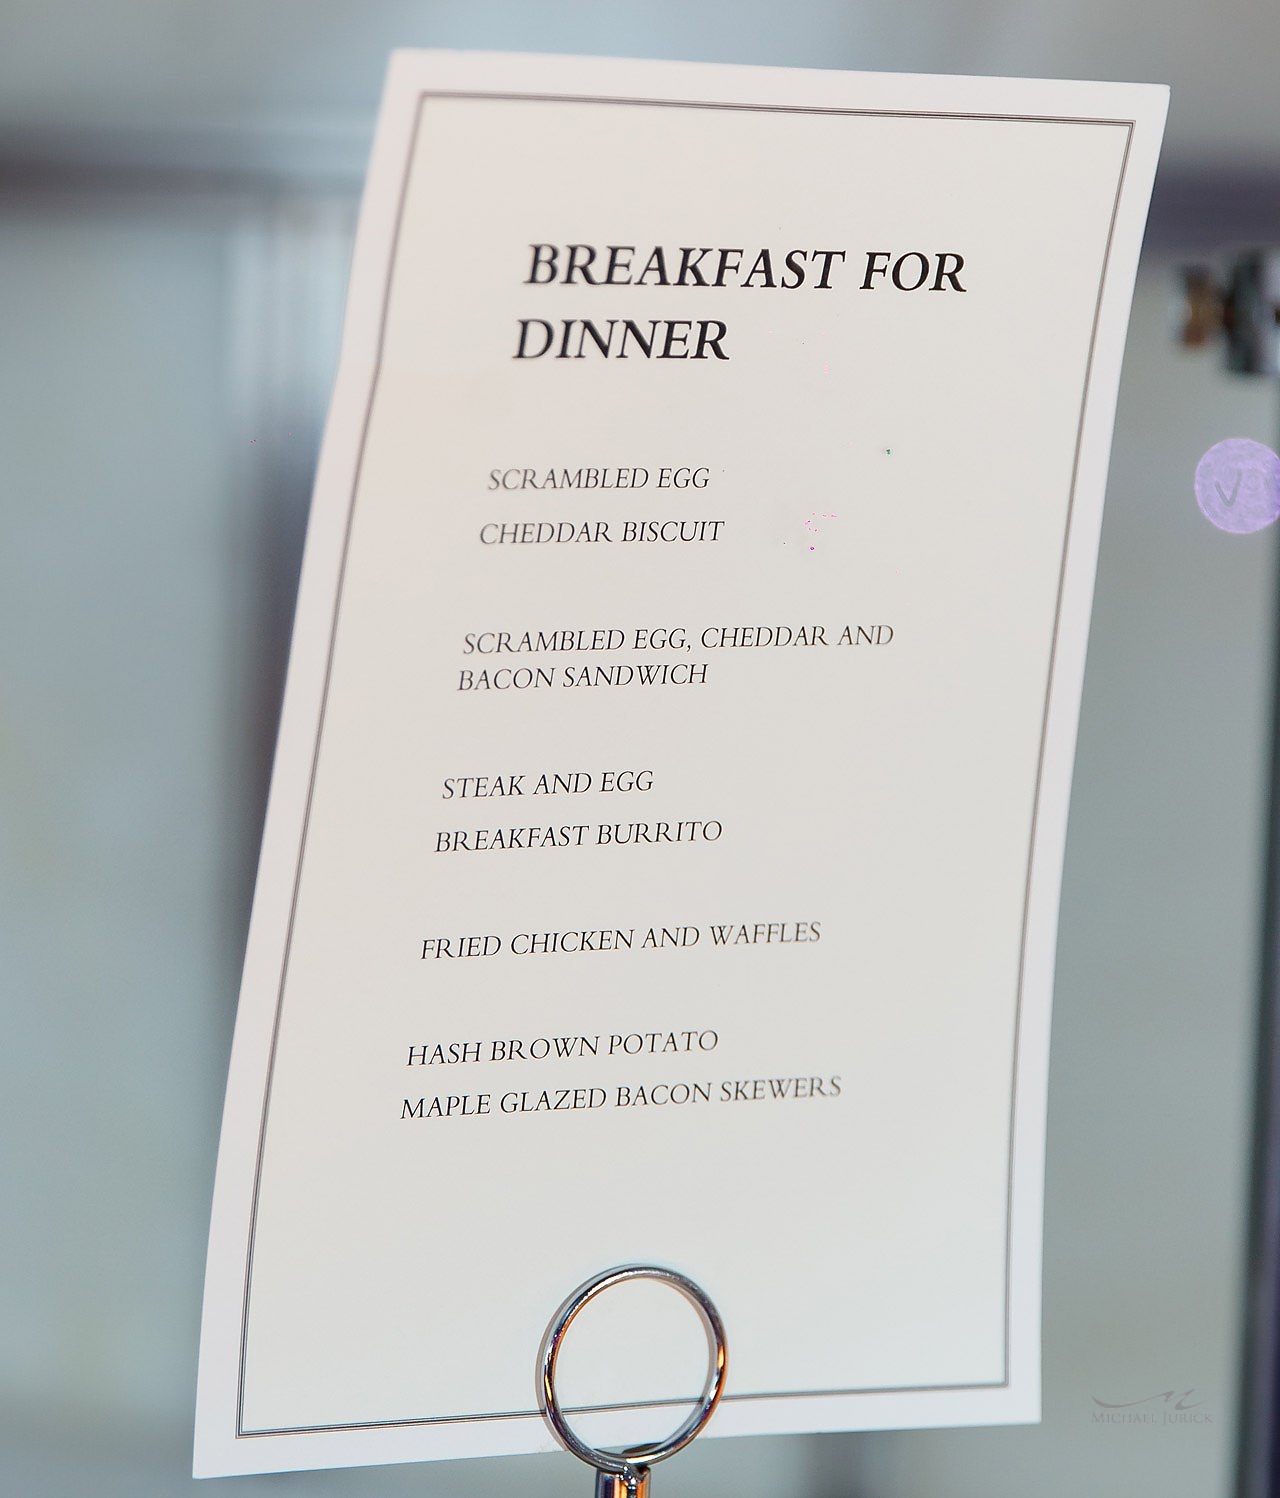 BREAKFAST FOR
DINNER
SCRAMBLED EGG
CHEDDAR BISCUIT
SCRAMBLED EGG, CHEDDAR AND
BACON SANDWICH
STEAK AND EGG
BREAKFAST BURRITO
FRIED CHICKEN AND WAFFLES
HASH BROWN POTATO
MAPLE GLAZED BACON SKEWERS
MICHAEL JURICK